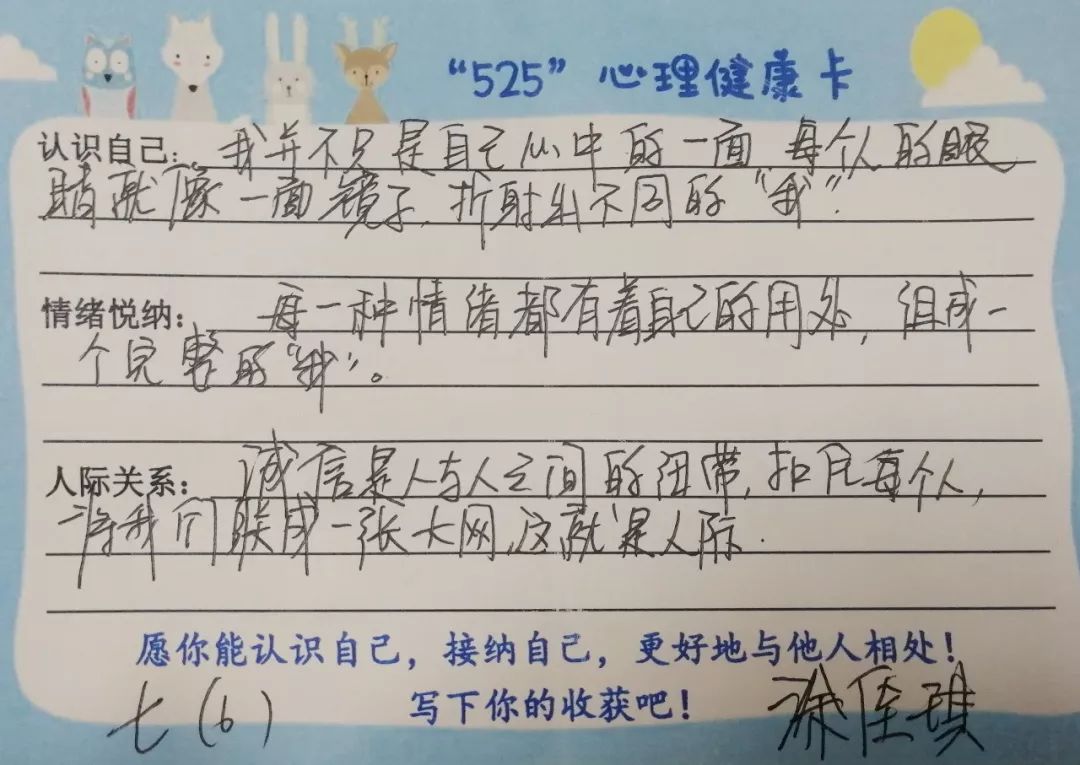 “525”心理健康卡
认识自己: 我并不只是自己心中的一面,每个人的眼
睛就像一面镜子,折射出不同的“我”.
情绪悦纳: 每一种情绪都有着自己的用处,组成一
个完整的“我”。
人际关系: 诚信是人与人之间的纽带,扣住每个人,
将我们联成一张大网,这就是人际.
愿你能认识自己,接纳自己,更好地与他人相处!
写下你的收获吧!
七(6) 徐佳琪